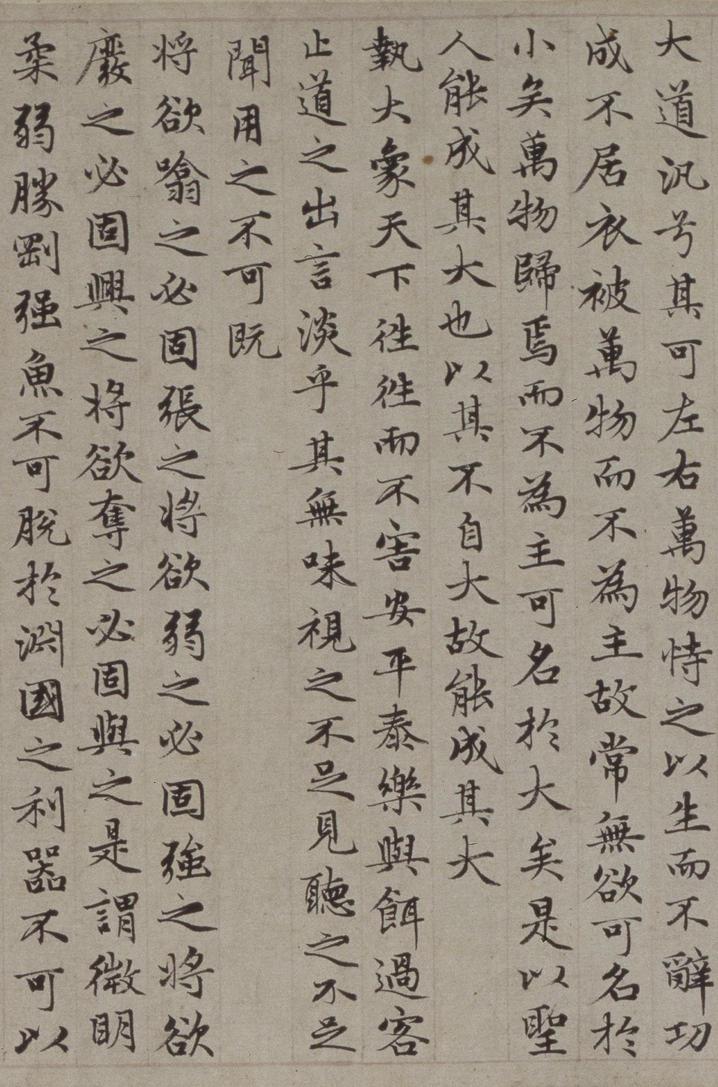 大道汎兮其可左右萬物恃之以生而不辭功
成不居衣被萬物而不為主故常無欲可名於
小矣萬物歸焉而不為主可名於大矣是以聖
人能成其大也以其不自大故能成其大
執大象天下往往而不害安平泰樂與餌過客
止道之出言淡乎其無味視之不足見聽之不足
聞用之不可既
將欲噏之必固張之將欲弱之必固強之將欲
廢之必固興之将欲奪之必固與之是謂微明
柔弱勝剛强魚不可脫於淵國之利器不可以